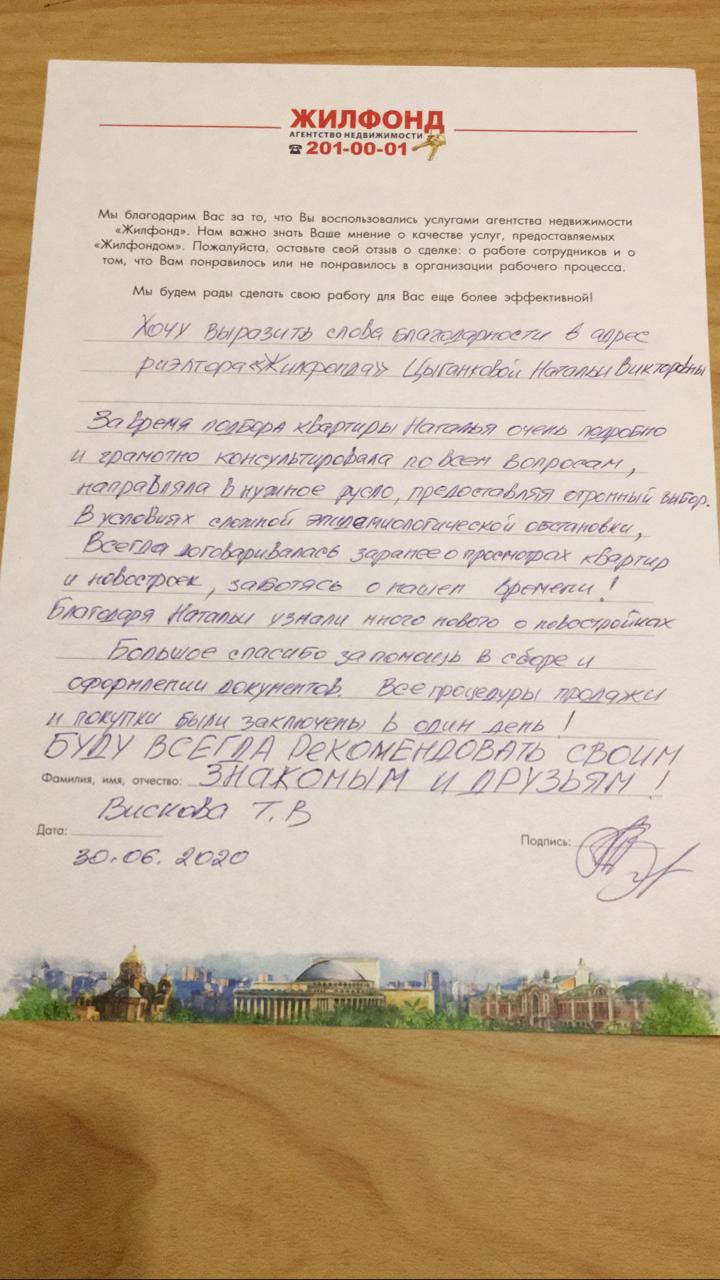 ЖИЛФОНД
АГЕНТСТВО НЕДВИЖИМОСТИ
☎ 201-00-01
Мы благодарим Вас за то, что Вы воспользовались услугами агентства недвижимости
«Жилфонд». Нам важно знать Ваше мнение о качестве услуг, предоставляемых
«Жилфондом». Пожалуйста, оставьте свой отзыв о сделке: о работе сотрудников и о
том, что Вам понравилось или не понравилось в организации рабочего процесса.
Мы будем рады сделать свою работу для Вас еще более эффективной!
Хочу выразить слова благодарности в адрес
риэлтора «Жилфонда» Цыганковой Натальи Викторовны
За время подбора квартиры Наталья очень подробно
и грамотно консультировала по всем вопросам,
направляла в нужное русло, предоставляя огромный выбор.
В условиях сложной эпидемиологической обстановки,
Всегда договаривалась заранее о просмотрах квартир
и новостроек, заботясь о нашем времени!
Благодаря Натальи узнали много нового о новостройках
Большое спасибо за помощь в сборе и
оформлении документов. Все процедуры продажи
и покупки были заключены в один день!
БУДУ ВСЕГДА РЕКОМЕНДОВАТЬ СВОИМ
ЗНАКОМЫМ И ДРУЗЬЯМ!
Фамилия, имя, отчество:
Вискова Т.В
Дата:
30.06.2020
Подпись: